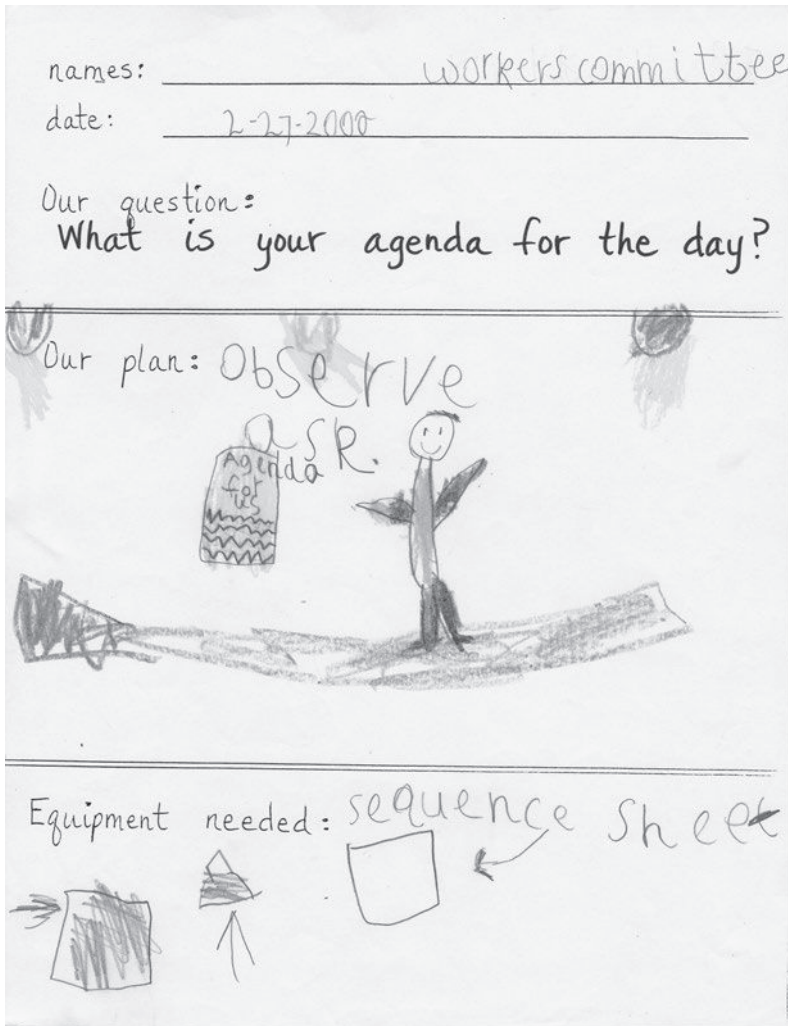 names: workers committee
date: 2-27-2000
Our question:
What is your agenda for the day?
Our plan: Observe
ask.
Agenda
for
us
Equipment needed: sequence sheet